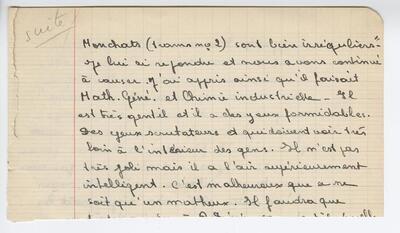 suite
Monchats (trams no 2) sont bien irréguliers"
Je lui ai repondu et nous avons continué
à causer. J'ai appris ainsi qu'il faisait
Math. Géné. et Chimie industrielle - Il
est très gentil et il a des yeux formidables.
Des yeux scrutateurs et qui doivent voir très
loin à l'intérieur des gens. Il n'est pas
très joli mais il a l'air supérieurement
intelligent. C'est malheureux que ce ne
soit qu'un matheux. Il faudra que